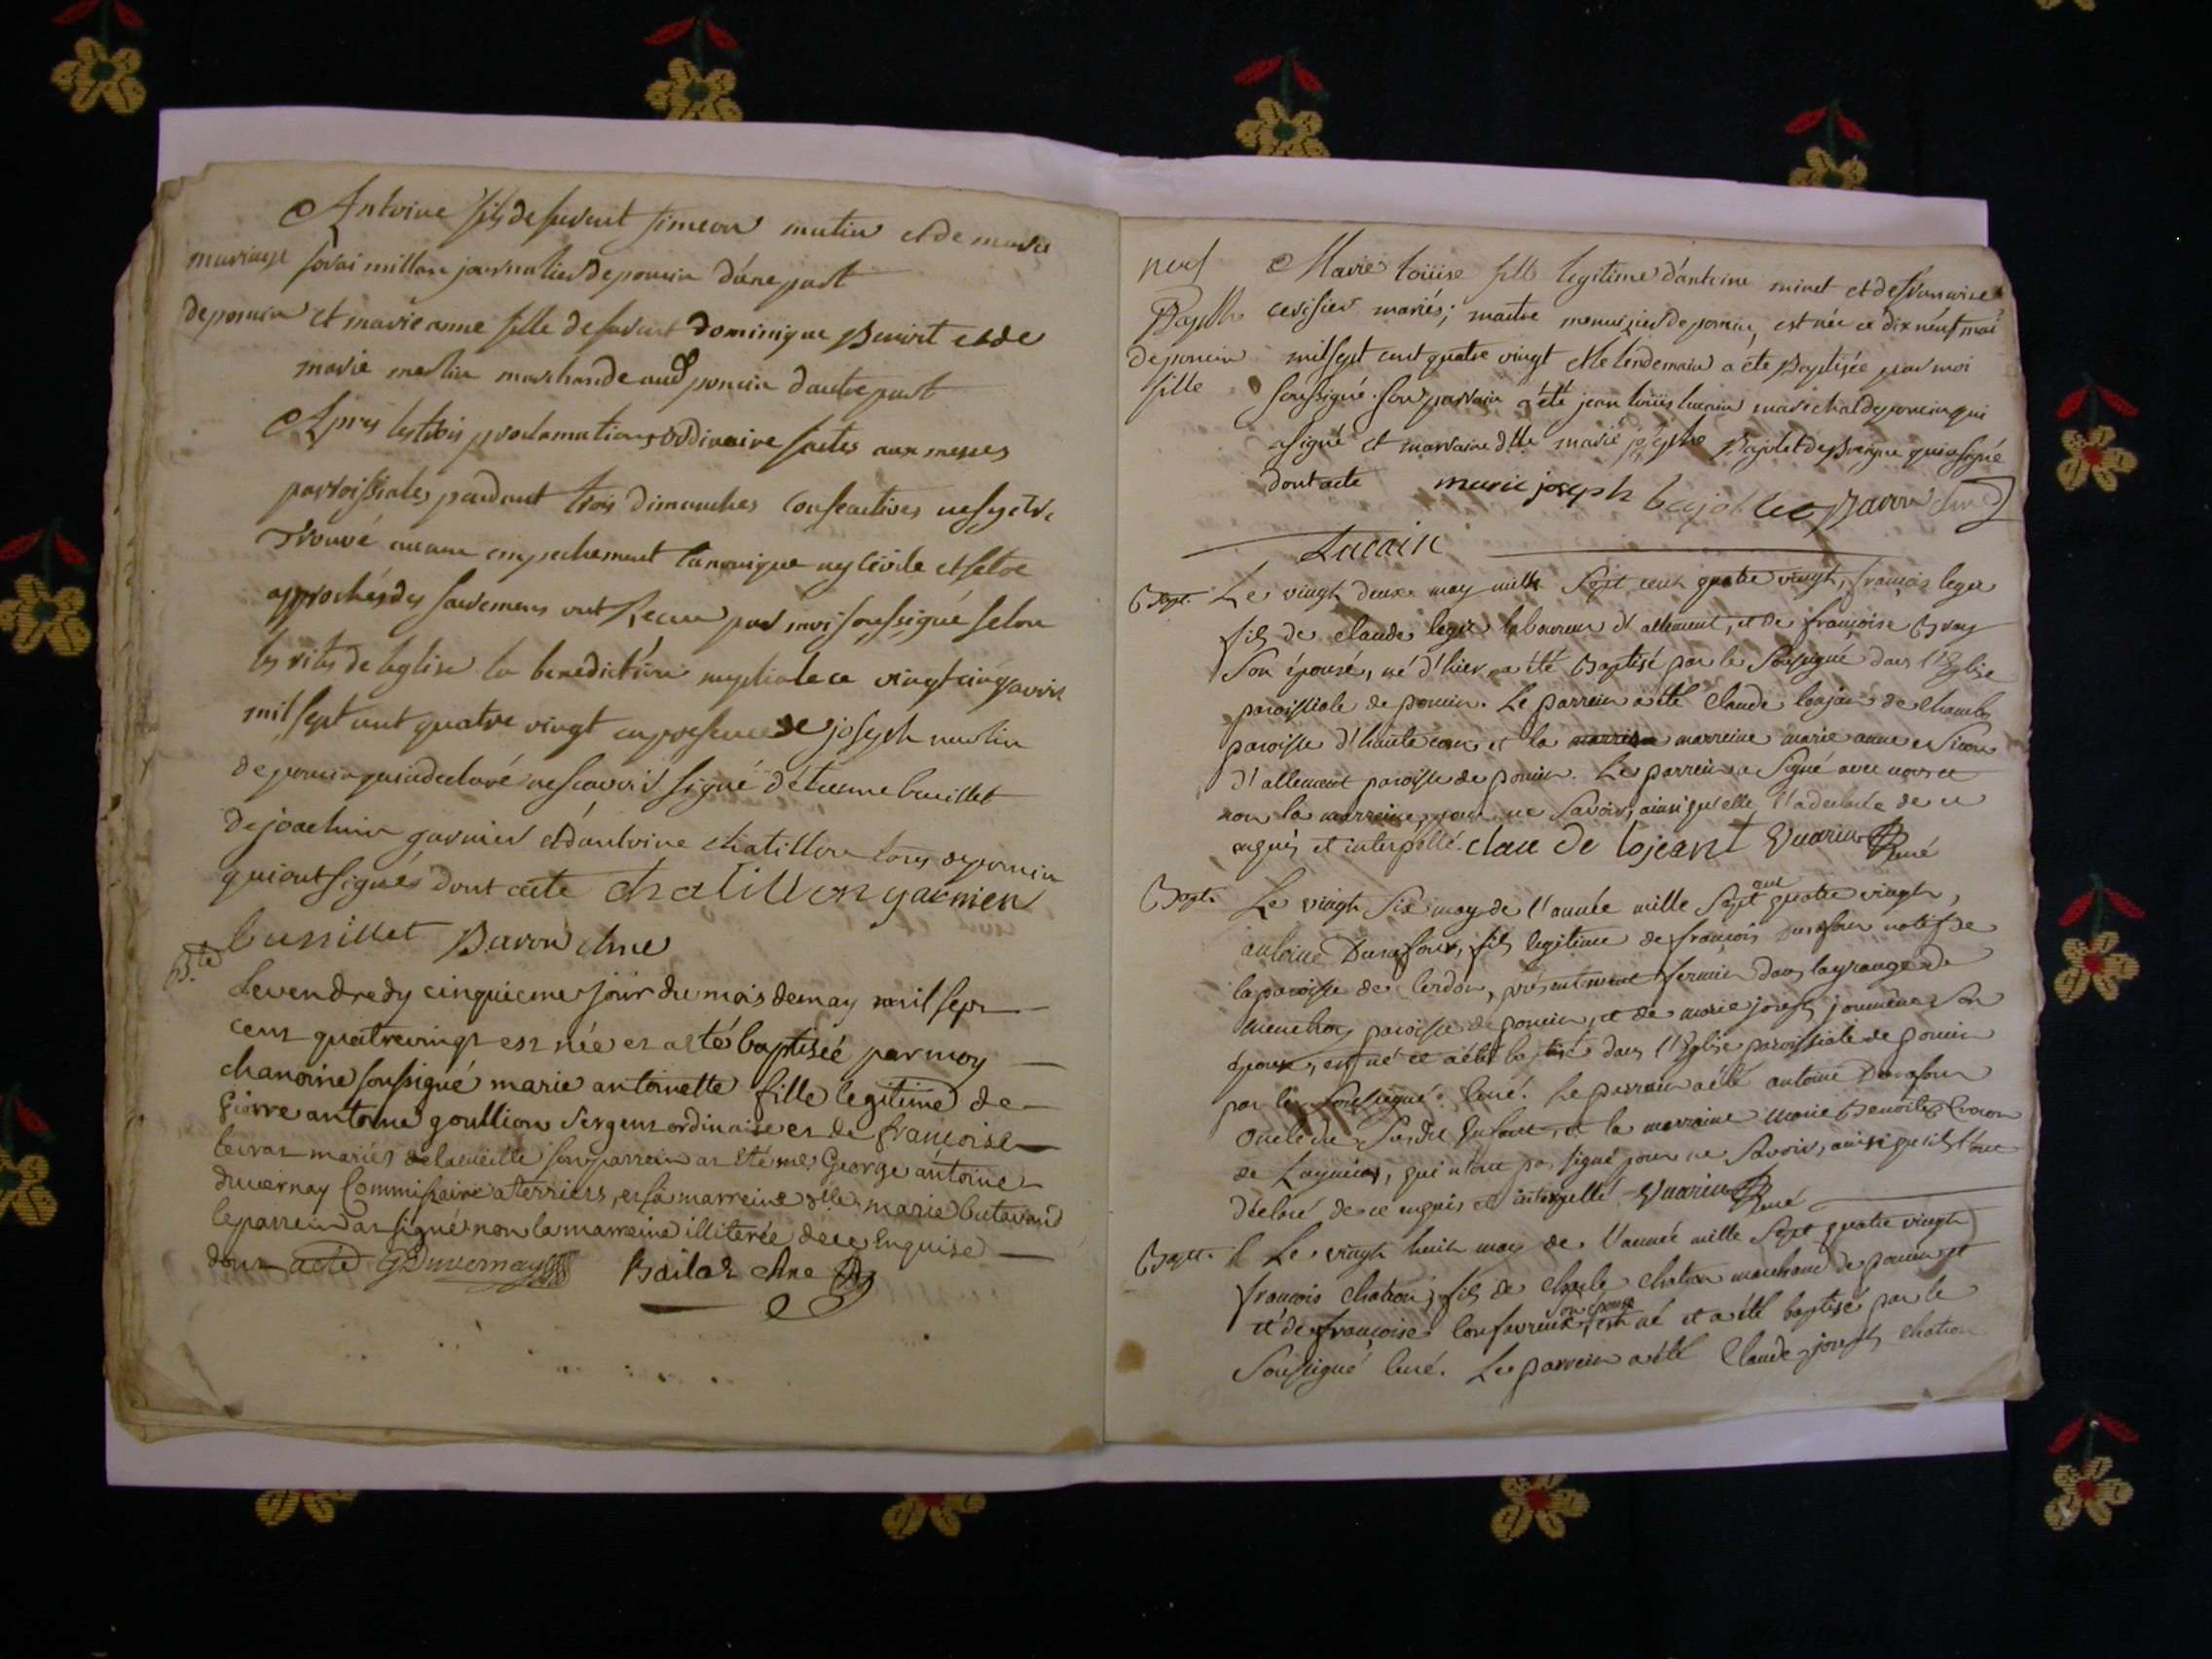 Antoine fils de furent simeon mutin et de marie
mariage sorai millan journalier de poncin d'une part
de poncin et marie anne fille de furent dominique Benoit et de
marie merlin marchande aud poncin d'autre part
Apres les trois proclamations ordinaire faites aux messes
parroissiales pendant trois dimanches consecutives ne s'y etre
trouvé aucun empechement canonique ny civile et s'etre
approchés des sacremens ont Recu par moi soussigné selon
les rites de leglise la benediction nuptiale ce vingt cinq avril
mil sept cent quatre vingt en presence de joseph merlin
de poncin qui a declaré ne scavoir signé d'étienne
de joachim garnier et d'antoine chatillon tous de poncin
qui ont signés dont acte chatillon garnier
Baron chne
B.te
Le vendredy cinquieme jour du mois de may mil sept
cens quatrevingt est née et a eté baptisée par moy
chanoine soussigné marie antoinette fille legitime de
pierre antoine goullion sergent ordinaire et de françoise
mariés son parrein at eté me George antoine
duvernay Commissaire a terriers, et sa marreine dlle marie butavand
le parrein at signé non la marreine illiterée de ce Enquise
dont acte GDuvernay Bailat chne
Marie loüise fille legitime d'antoine minet et de francoise
Bapthe cerisier mariés; maitre menuisier de poncin, est née ce dix neuf mai
de poncin mil sept cent quatre vingt et le lendemain a eté Baptisée par moi
fille soussigné. son parrain a été jean loüis lucain marechal de poncin qui
a signé et marraine dlle marie josephe Bajolet de qui a signé
dont acte marie joseph bajollet Baron chne
Lucain
Bapt. Le vingt deux may mille Sept cent quatre vingt, françois leger
fils de claude leger laboureur d'allement, et de françoise Bray
Son épouse, né d'hier, a été Baptisé par le Soussigné dans l'Eglise
paroissiale de poncin. Le parrein a été Claude de Chamb
paroisse d' et la marreine marie anne
d'allement paroisse de poncin. Le parrein a Signé avec nous et
non la marreine, pour ne Savoir, ainsi qu'elle l'a declaré de ce
enquis et interpellé. clau de lojeant Vuarin Curé
Bapt. Le vingt Six may de l'année mille Sept cent quatre vingt,
antoine Durafour, fils legitime de françois Durafour natif de
la paroisse de Cerdon, presentement fermier dans la grange de
paroisse de poncin, et de marie joseph Son
épouse, est né et a été baptisé dans l'Eglise paroissiale de poncin
par le soussigné Curé. Le parrain a été antoine Durafour
oncle du Susdit Enfant, et la marraine marie Benoite
de Lagnieu, qui n'ont pas signé pour ne Savoir, ainsi qu'ils l'ont
déclaré de ce enquis et interpellé Vuarin Curé
Bapt. Le vingt huit may de l'année mille Sept quatre vingt
françois Chatron, fils de Charle Chatron marchand de poncin et
et de françoise Confavreux, Son épouse est né et a été baptisé par le
Soussigné Curé. Le parrein a été Claude joseph chatron